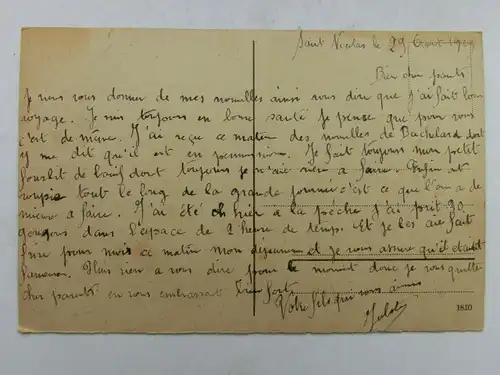 Saint Nicolas le 29 Aout 1929
Bien cher parents
Je vous donner de mes nouvelles ainsi vous dire que j'ai fait bon
voyage. Je suis toujours en bonne santé Je pense que pour vous
c'est de même. J'ai reçu ce matin des nouvelles de Bachelard dont
y me dit qu'il est en permission. Je fait toujours mon petit
fourbit de boif dont toujours je n'aie rien a faire. Enfin
roupie tout le long de la grande journee c'est ce que l'on a de
mieux a faire. J'ai été hier a la pêche j'ai prit 20
goujons dans l'espace de 2 heure de temps. Et je les aie fait
frire pour moi ce matin mon dejeuner et je vous assure qu'il etait
fameux. Plus rien a vous dire pour le moment donc je vous quitte
cher parents en vous embrassant Tres fort.
Votre fils qui vous aime
1810